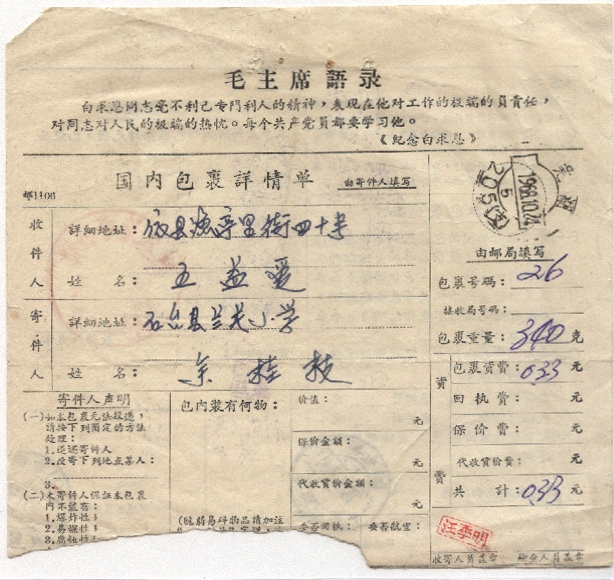 毛主席語录
白求恩同志毫不利己专門利人的精神，表現在他对工作的极端的負責任，
对同志对人民的极端的热忱。每个共产党員都要学习他。
《紀念白求恩》
邮1106
国内包裹詳情单
由寄件人填写
收件人
詳細地址：
姓名：王益爱
寄件人
詳細地址：石台县兰关小学
姓名：余桂枝
寄件人声明
(一)如本包裹无法投递，
請按下列图定的方法
处理：
1.退还寄件人
2.改寄下列地点某人：
3.
(二)本寄件人保証本包裹
内不装有：
1.爆炸性；
2.易燃性；
包內裝有何物：
(脆弱易碎物品請加注
价值：
元
保价金額：
元
代收貨价金額：
元
1968.10.24
由邮局填写
包裹号碼：26
接收局号碼：
包裹重量：340克
資費
包裹資費：033元
回执费：元
保价费：元
代收貨价费：元
共計：033元
汪季明